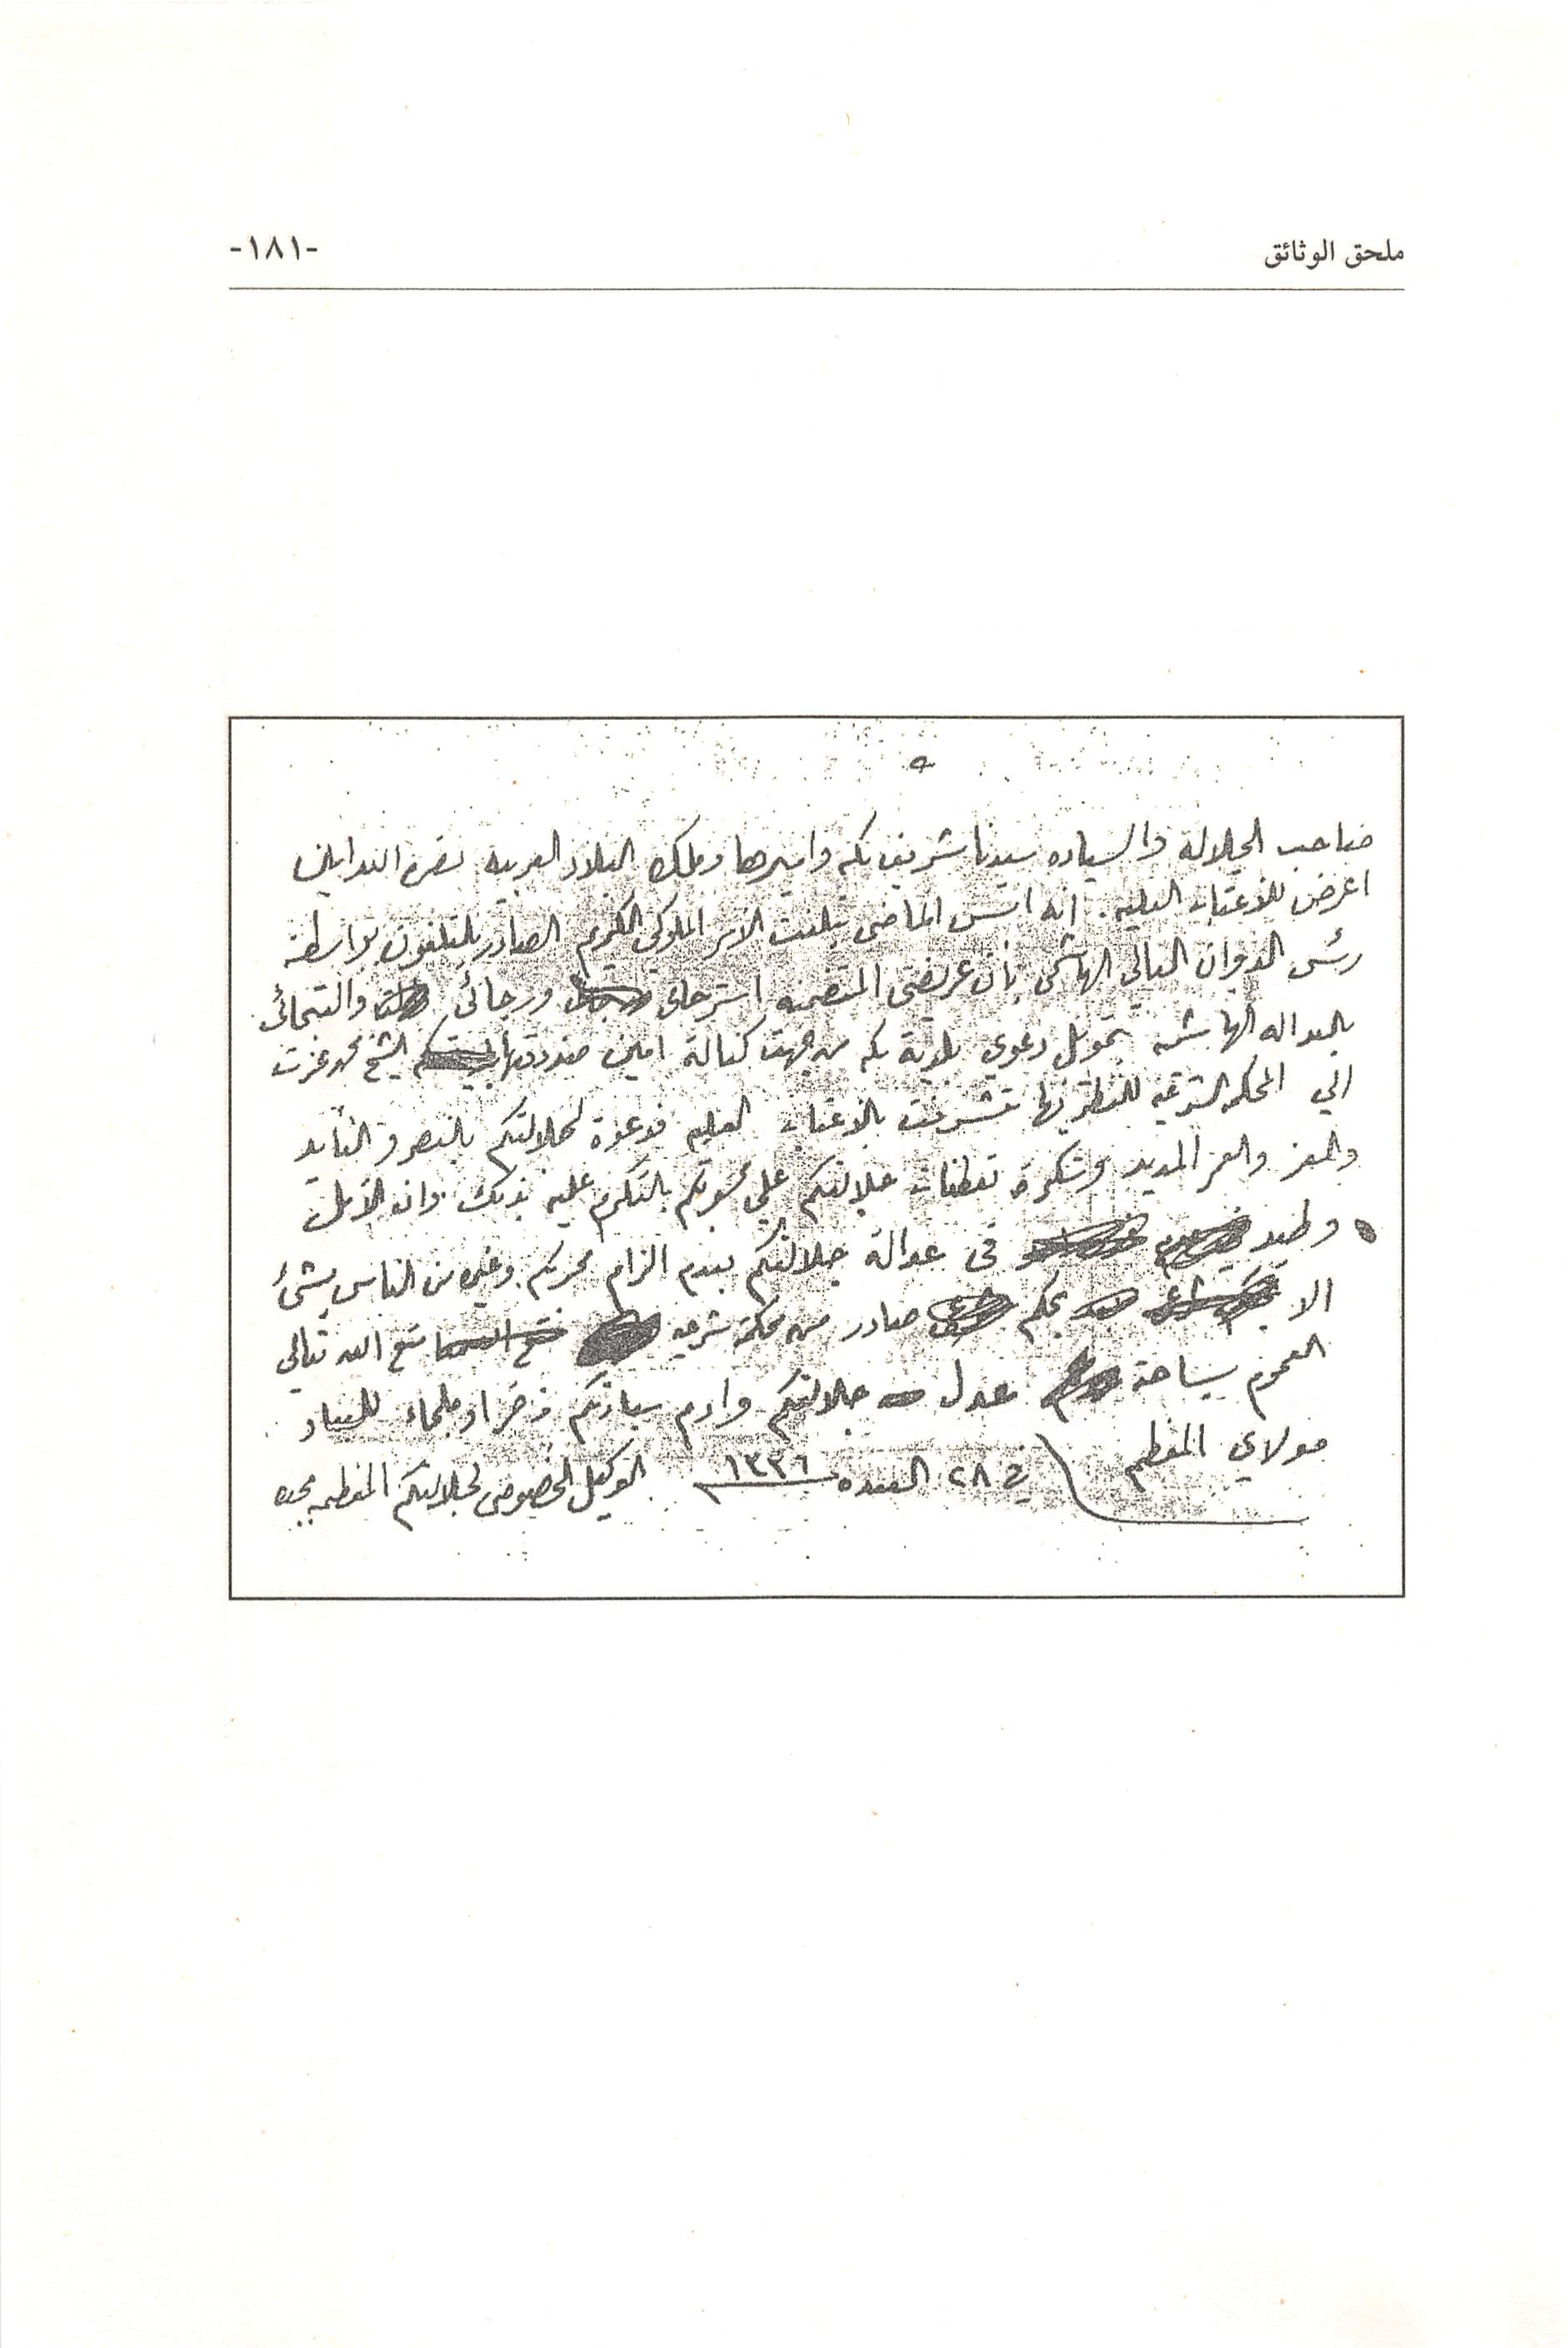 ملحق الوثائق
-١٨١-
صاحب الجلالة والسياده سيدنا شريف مكه واميرها وملك البلاد العربيه نصره الله امين
اعرض للاعتاب العليه. انه امس الماضى تبلغت الامر الملوكي الكريم الصادر بالتلفون بواسطة
رئس الديوان العالي الهاشمى بأن عريضتى المتضمنه استرحامى ورجائى والتجائى
بالعداله الهاشميه تحويل دعوي بلدية مكه من جهت كفالة امين صندوقها الشيخ محمد عزت
الي المحكمه الشرعيه للنظر فيها تشرفت بالاعتاب العليه فدعوة لجلالتكم بالنصر والتأيد
والعز والعمر المديد وشكرة تعطفات جلالتكم علي محسوبكم بالتكرم عليه بذلك وان الامل
وطيد فى عدالة جلالتكم بعدم الزام محررتكم وغيره من الناس بشئ
الا بحكم صادر من محكمة شرعيه متع الله تعالي
العموم بساحة عدل جلالتكم وادم سيادتكم ذخرا وملجاء للعباد
مولاي المعظم
في ٢٨ القعده ١٣٣٦
الوكيل الخصوصى لجلالتكم المعظمه بجده